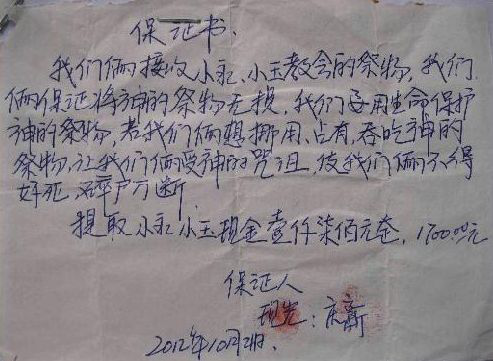 保证书.
我们俩接收小永、小玉教会的祭物,我们
俩保证将神的祭物无损,我们要用生命保护
神的祭物,若我们俩想挪用、占有、吞吃神的
祭物,让我们俩受神的咒诅,使我们俩不得
好死 碎尸万断
提取小永小玉现金壹仟柒佰元整,1700.00元
保证人
现光:庆新
2012年10月2日.